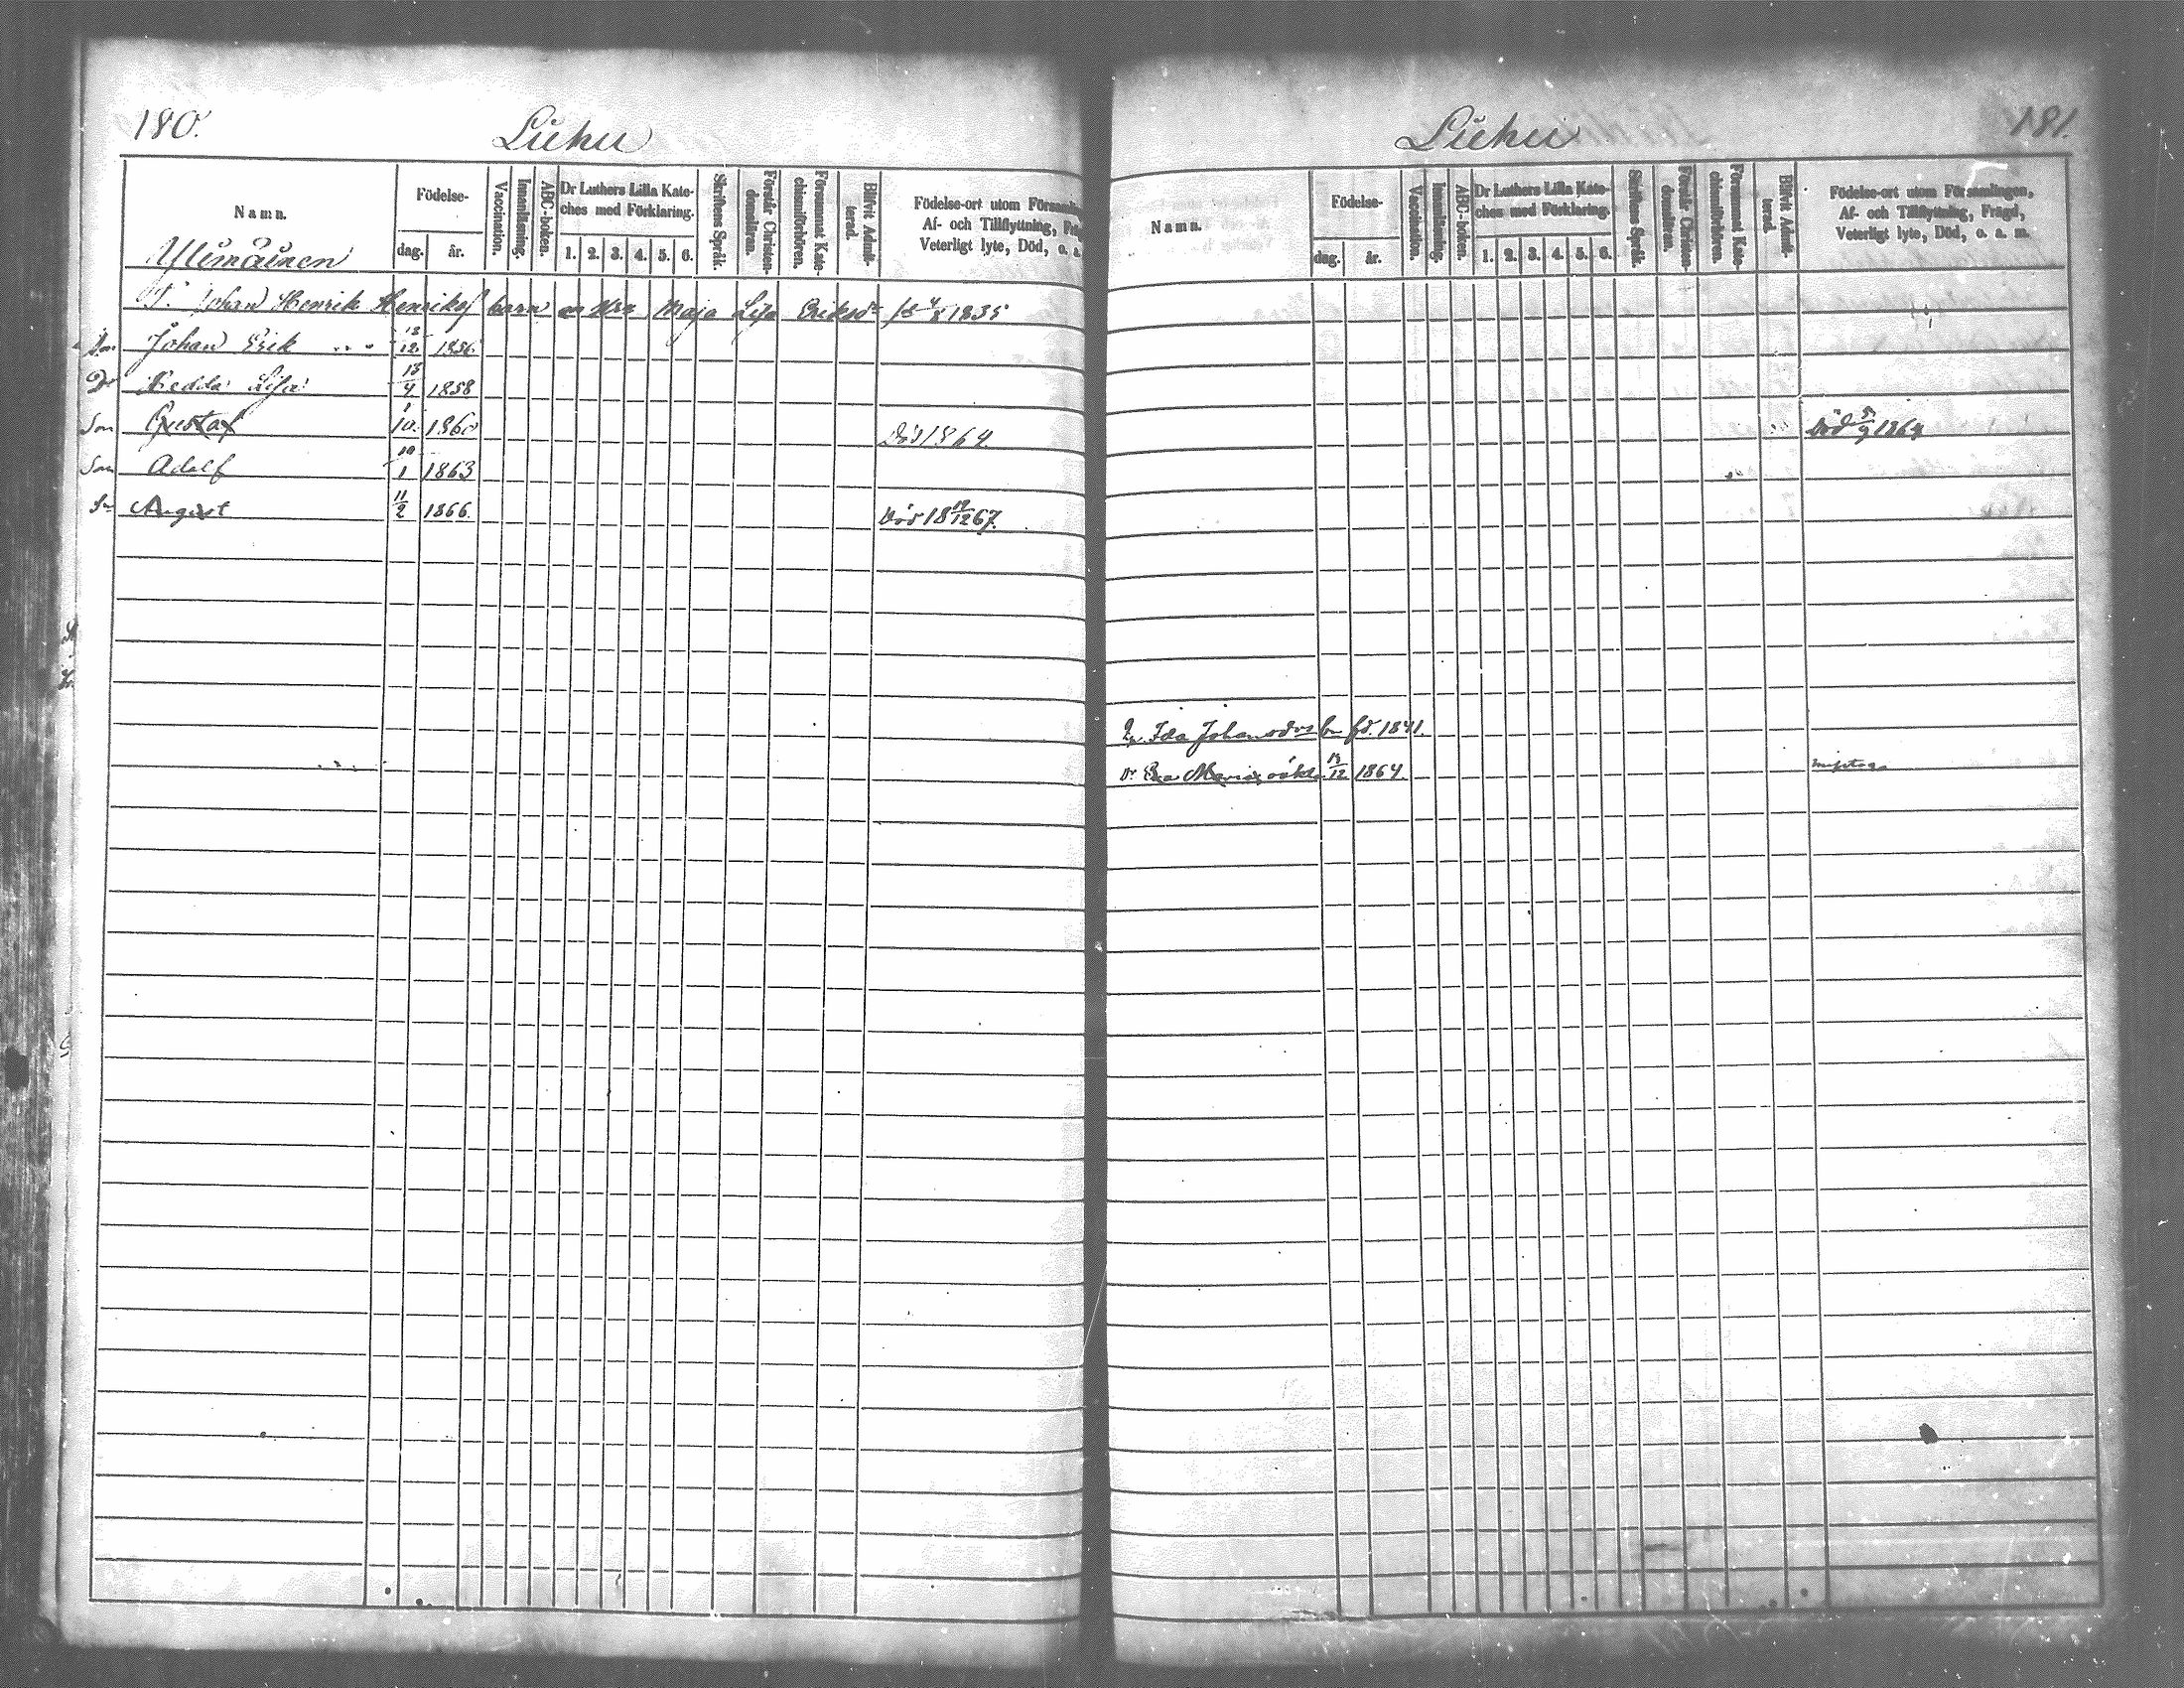 180.
Namn.
Födelse-
dag.
år.
Vaccination.
Innanläsning.
ABC-boken.
Dr Luthers Lilla Kate-
ches med Förklaring.
1. 2. 3. 4. 5. 6.
Skriftens Språk.
Förstår Christen-
domsläran.
Försummat Kate-
chismiförhören.
Blifvit Admit-
terad.
Födelse-ort utom Församlin
Af- och Tillflyttning, Fräg
Veterligt lyte, Död, o. a.
Johan Henrik Henrikss barn Maja Lisa Eriksdr 1835
Johan Erik 13/12 1856
Dr Hedda Lisa 13/4 1858
Son Gustaf 1/10 1860 Död 1864
Son Adolf 10/1 1863
Sn August 11/2 1866. Död 1867.
181.
Namn.
Födelse-
dag.
år.
Vaccination.
Innanläsning.
ABC-boken.
Dr Luthers Lilla Kate-
ches med Förklaring.
1. 2. 3. 4. 5. 6.
Skriftens Språk.
Förstår Christen-
domsläran.
Försummat Kate-
chismiförhören.
Blifvit Admit-
terad.
Födelse-ort utom Församlingen,
Af- och Tillflyttning, Frägd,
Veterligt lyte, Död, o. a. m.
Död 5/9 1864
Ida Johansdrs bn fd. 1841.
Dr Eva Maria oäkta 1864.